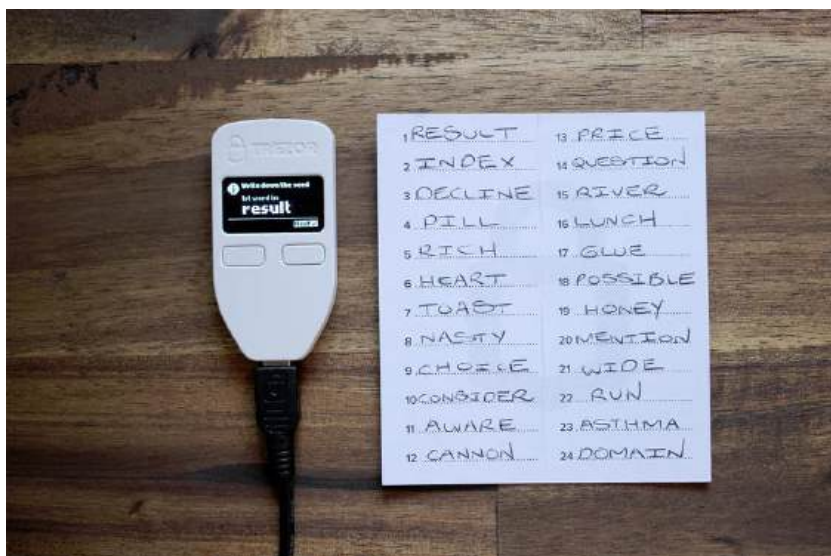 TREZOR
Write down the seed
1st word is:
result
1 RESULT
2 INDEX
3 DECLINE
4 PILL
5 RICH
6 HEART
7 TOAST
8 NASTY
9 CHOICE
10 CONSIDER
11 AWARE
12 CANNON
13 PRICE
14 QUESTION
15 RIVER
16 LUNCH
17 GLUE
18 POSSIBLE
19 HONEY
20 MENTION
21 WIDE
22 RUN
23 ASTHMA
24 DOMAIN